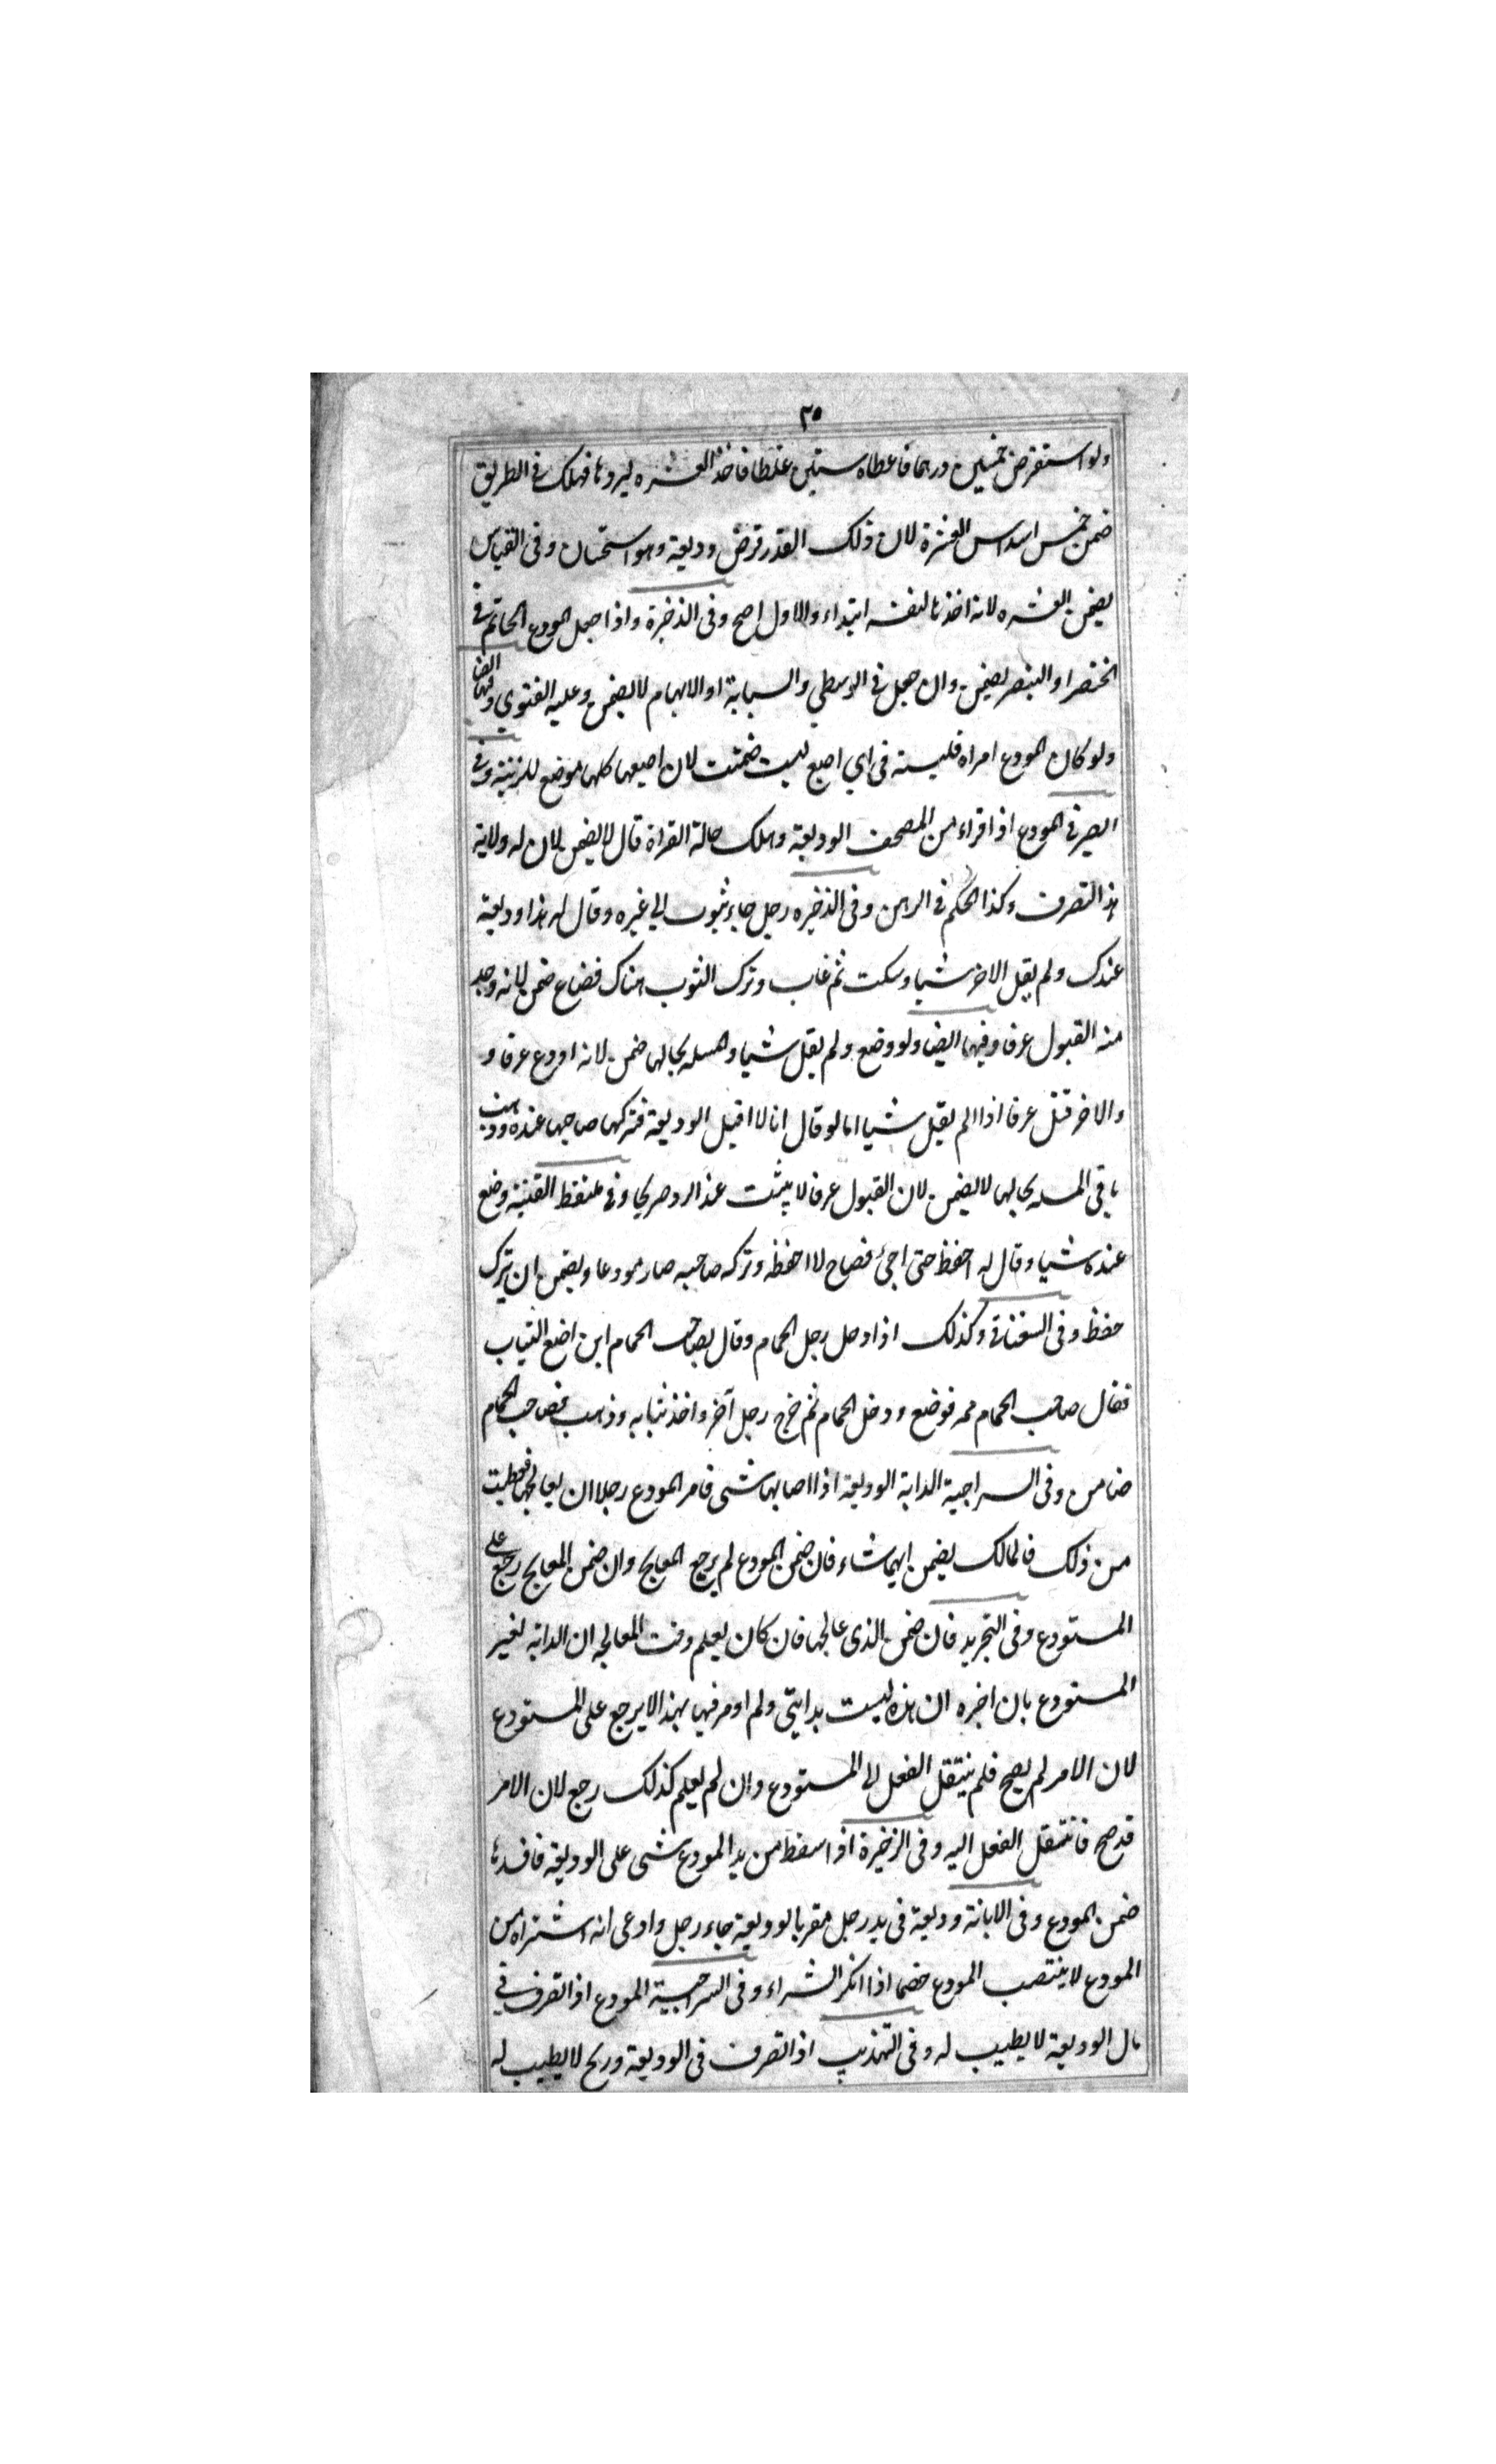 ٢٥
ولو استقرض خمسين درهما فاعطاه ستين غلطا فاخذ العشره ليردها فهلك في الطريق
ضمن خمس اسداس العشرة لان ذلك القدر قرض وديعة وهو استحسان وفى القياس
يضمن العشره لانه اخذها لنفسه ابتداء والاول اصح وفى الذخيرة واذا جعل المودع الخاتم في
الخنصر او البنصر يضمن وان جعل في الوسطي والسبابة او الابهام لا يضمن وعليه الفتوي وفيها ايضا
ولو كان المودع امراه فلبسته فى اي اصبع لبست ضمنت لان اصبعها كلها موضع للزينة وفي
الصيرفي المودع اذا قراء من المصحف الوديعة وهلك حالة القراة قال لا يضمن لان له ولاية
هذا التصرف وكذا الحكم في الرهن وفى الذخيره رجل جاء بثوب الي غيره وقال له هذا وديعة
عندك ولم يقل الاخر شيا وسكت ثم غاب وترك الثوب هناك فضاع ضمن لانه وجد
منه القبول عرفا وفيها ايضا ولو وضع ولم يقل شيا والمسله بحالها ضمن لانه اودع عرفا و
والاخر قبل عرفا اذا لم يقبل شيا اما لو قال انا لا اقبل الوديعة فتركها صاحبها عنده وذهب
باقي المسله بحالها لا يضمن لان القبول عرفا لا يثبت عند الرد صريحا وفي ملتقط القنية وضع
عنده شيا وقال له احفظ حتى اجئ فصاح لا احفظه وتركه صاحبه صار مودعا ويضمن ان ترك
حفظ وفى السغناقي وكذلك اذا دخل رجل الحمام وقال لصاحب الحمام اين اضع الثياب
فقال صاحب الحمام ثمه فوضع ودخل الحمام ثم خرج رجل آخر واخذ ثيابه وذهب فصاحب الحمام
ضامن وفى السراجية الدابة الوديعة اذا اصابها شى فامر المودع رجلا ان يعالجها فعطبت
من ذلك فالمالك يضمن ايهما شاء فان ضمن المودع لم يرجع المعالج وان ضمن المعالج رجع على
المستودع وفى التجريد فان ضمن الذى عالجها فان كان يعلم وقت المعالجه ان الدابه لغير
المستودع بان اخبره ان هذه ليست بدابتي ولم اومر فيها بهذا لا يرجع على المستودع
لان الامر لم يصح فلم ينتقل الفعل الى المستودع وان لم يعلم كذلك رجع لان الامر
قد صح فانتقل الفعل اليه وفى الزخيرة اذا سقط من يد المودع شى على الوديعة فافسدها
ضمن المودع وفى الابانة وديعة فى يد رجل مقر بالوديعة جاء رجل وادعى انه اشتراه من
المودع لا ينتصب المودع خصما اذا انكر الشراء وفى السراجية المودع اذا تصرف في
مال الوديعة لا يطيب له وفى التهذيب اذا تصرف فى الوديعة وربح لا يطيب له